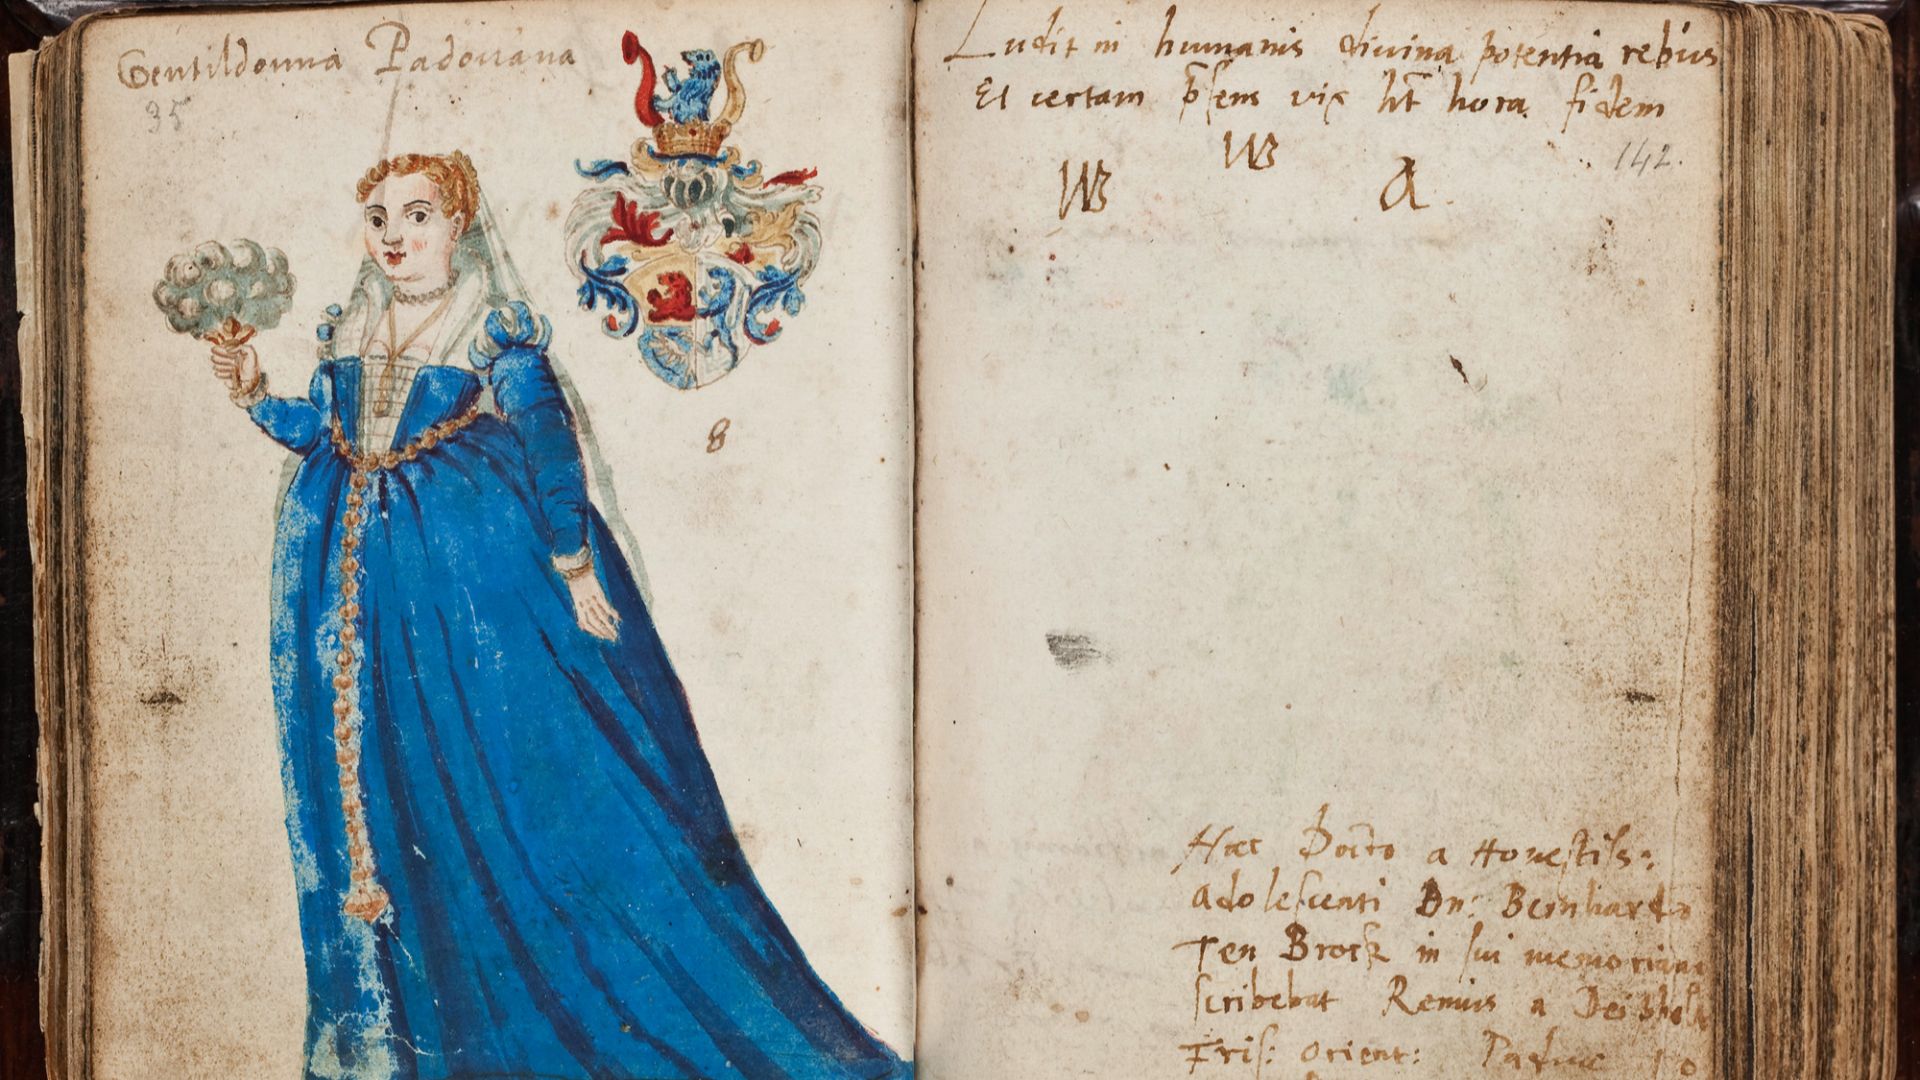 Gentildonna Padovana
35
8
Ludit in humanis divina potentia rebus
Et certam p̄sens vix ht̄ hora fidem
142.
WB
WB
A
Haec Docto a Honestiss:
Adolescenti Dn: Bernhardo
Ten Brock in sui memoriam
scribebat Remus a
Fris: Orient: